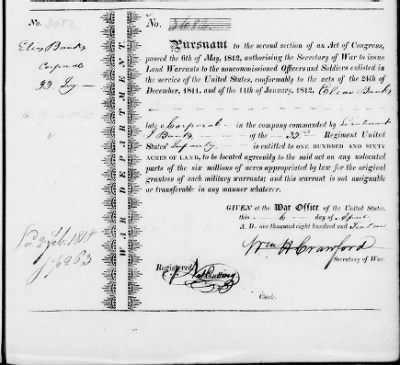 No. 3682
No. 3682.
Pursuant to the second section of an Act of Congress,
passed the 6th of May, 1812, authorising the Secretary of War to issue
Land Warrants to the noncommissioned Officers and Soldiers enlisted
in the service of the United States, conformably to the acts of the 24th of
December, 1811, and of the 11th of January, 1812. Elias Banks
late Corporal in the company commanded by Lieutenant
J Banks of the 33rd Regiment United
States' Infantry is entitled to ONE HUNDRED AND SIXTY
ACRES OF LAND, to be located agreeably to the said act on any unlocated
parts of the six millions of acres appropriated by law for the original
grantees of such military warrants; and this warrant is not assignable
or transferable in any manner whatever.
GIVEN at the War Office of the United States,
this 6 day of April
A. D. one thousand eight hundred and Sixteen
Wm H Crawford
Secretary of War.
Registered
Clerk.
WAR DEPARTMENT.
Elias Banks
Corporal
33 Infy
Feb. 1818